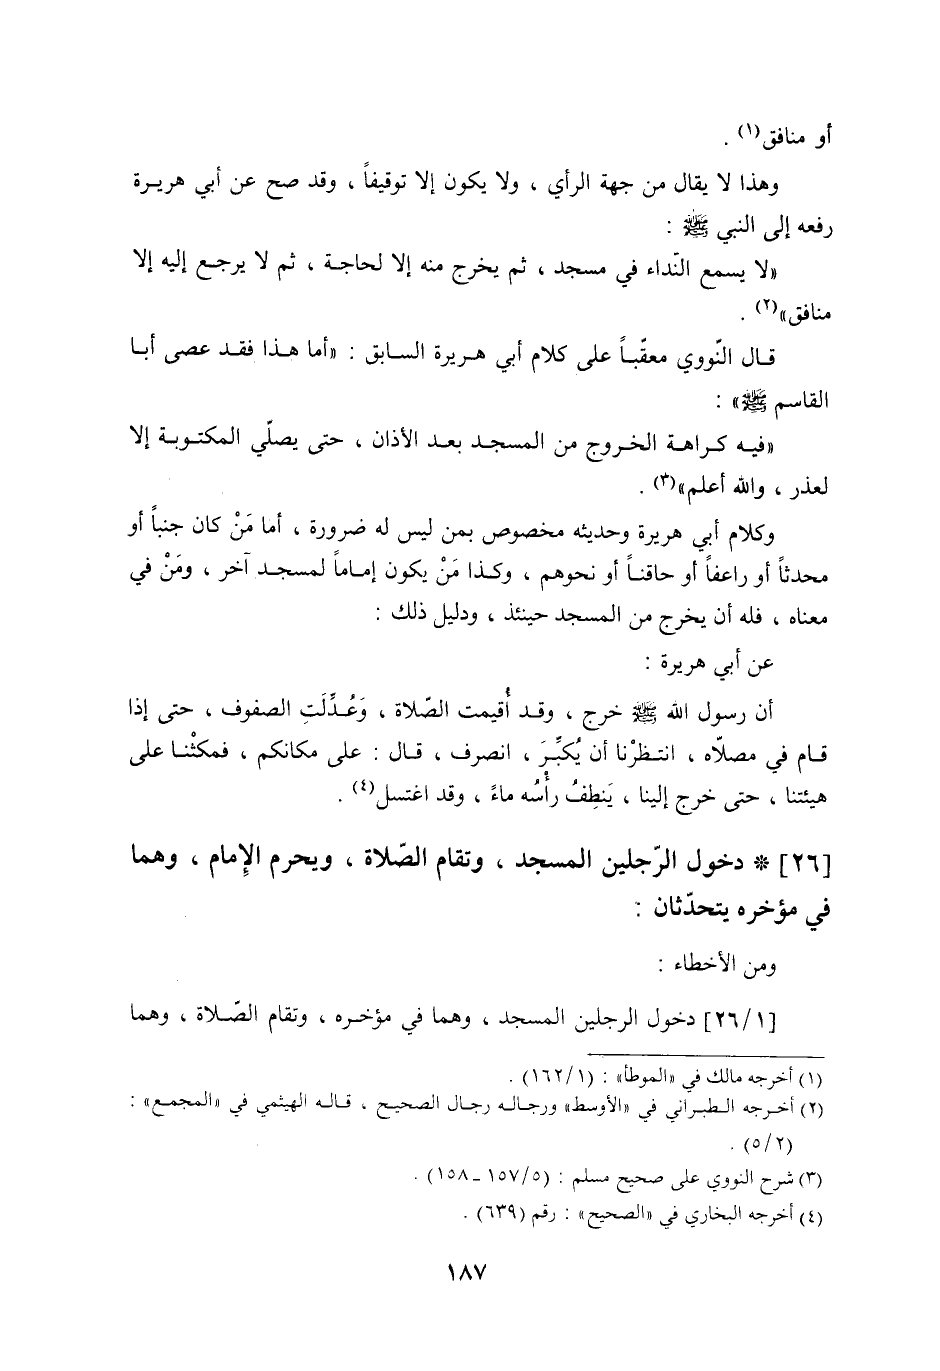 أو منافق(١) .
وهذا لا يقال من جهة الرأي ، ولا يكون إلا توقيفاً ، وقد صح عن أبي هريرة
رفعه إلى النبي ﷺ :
«لا يسمع النّداء في مسجد ، ثم يخرج منه إلا لحاجة ، ثم لا يرجع إليه إلا
منافق»(٢) .
قال النّووي معقّباً على كلام أبي هريرة السابق : «أما هذا فقد عصى أبا
القاسم ﷺ» :
«فيه كراهة الخروج من المسجد بعد الأذان ، حتى يصلّي المكتوبة إلا
لعذر ، والله أعلم»(٣) .
وكلام أبي هريرة وحديثه مخصوص بمن ليس له ضرورة ، أما مَنْ كان جنباً أو
محدثاً أو راعفاً أو حاقناً أو نحوهم ، وكذا مَنْ يكون إماماً لمسجد آخر ، ومَنْ في
معناه ، فله أن يخرج من المسجد حينئذ ، ودليل ذلك :
عن أبي هريرة :
أن رسول الله ﷺ خرج ، وقد أُقيمت الصّلاة ، وَعُدِّلَتِ الصفوف ، حتى إذا
قام في مصلّاه ، انتظرْنا أن يُكبِّرَ ، انصرف ، قال : على مكانكم ، فمكثْنا على
هيئتنا ، حتى خرج إلينا ، يَنطِفُ رأْسُه ماءً ، وقد اغتسل(٤) .
[٢٦] * دخول الرّجلين المسجد ، وتقام الصّلاة ، ويحرم الإمام ، وهما
في مؤخره يتحدّثان :
ومن الأخطاء :
[٢٦/١] دخول الرجلين المسجد ، وهما في مؤخره ، وتقام الصّلاة ، وهما
(١) أخرجه مالك في «الموطأ» : (١٦٢/١) .
(٢) أخرجه الطبراني في «الأوسط» ورجاله رجال الصحيح ، قاله الهيثمي في «المجمع» :
(٥/٢) .
(٣) شرح النووي على صحيح مسلم : (١٥٧/٥ ـ ١٥٨) .
(٤) أخرجه البخاري في «الصحيح» : رقم (٦٣٩) .
١٨٧